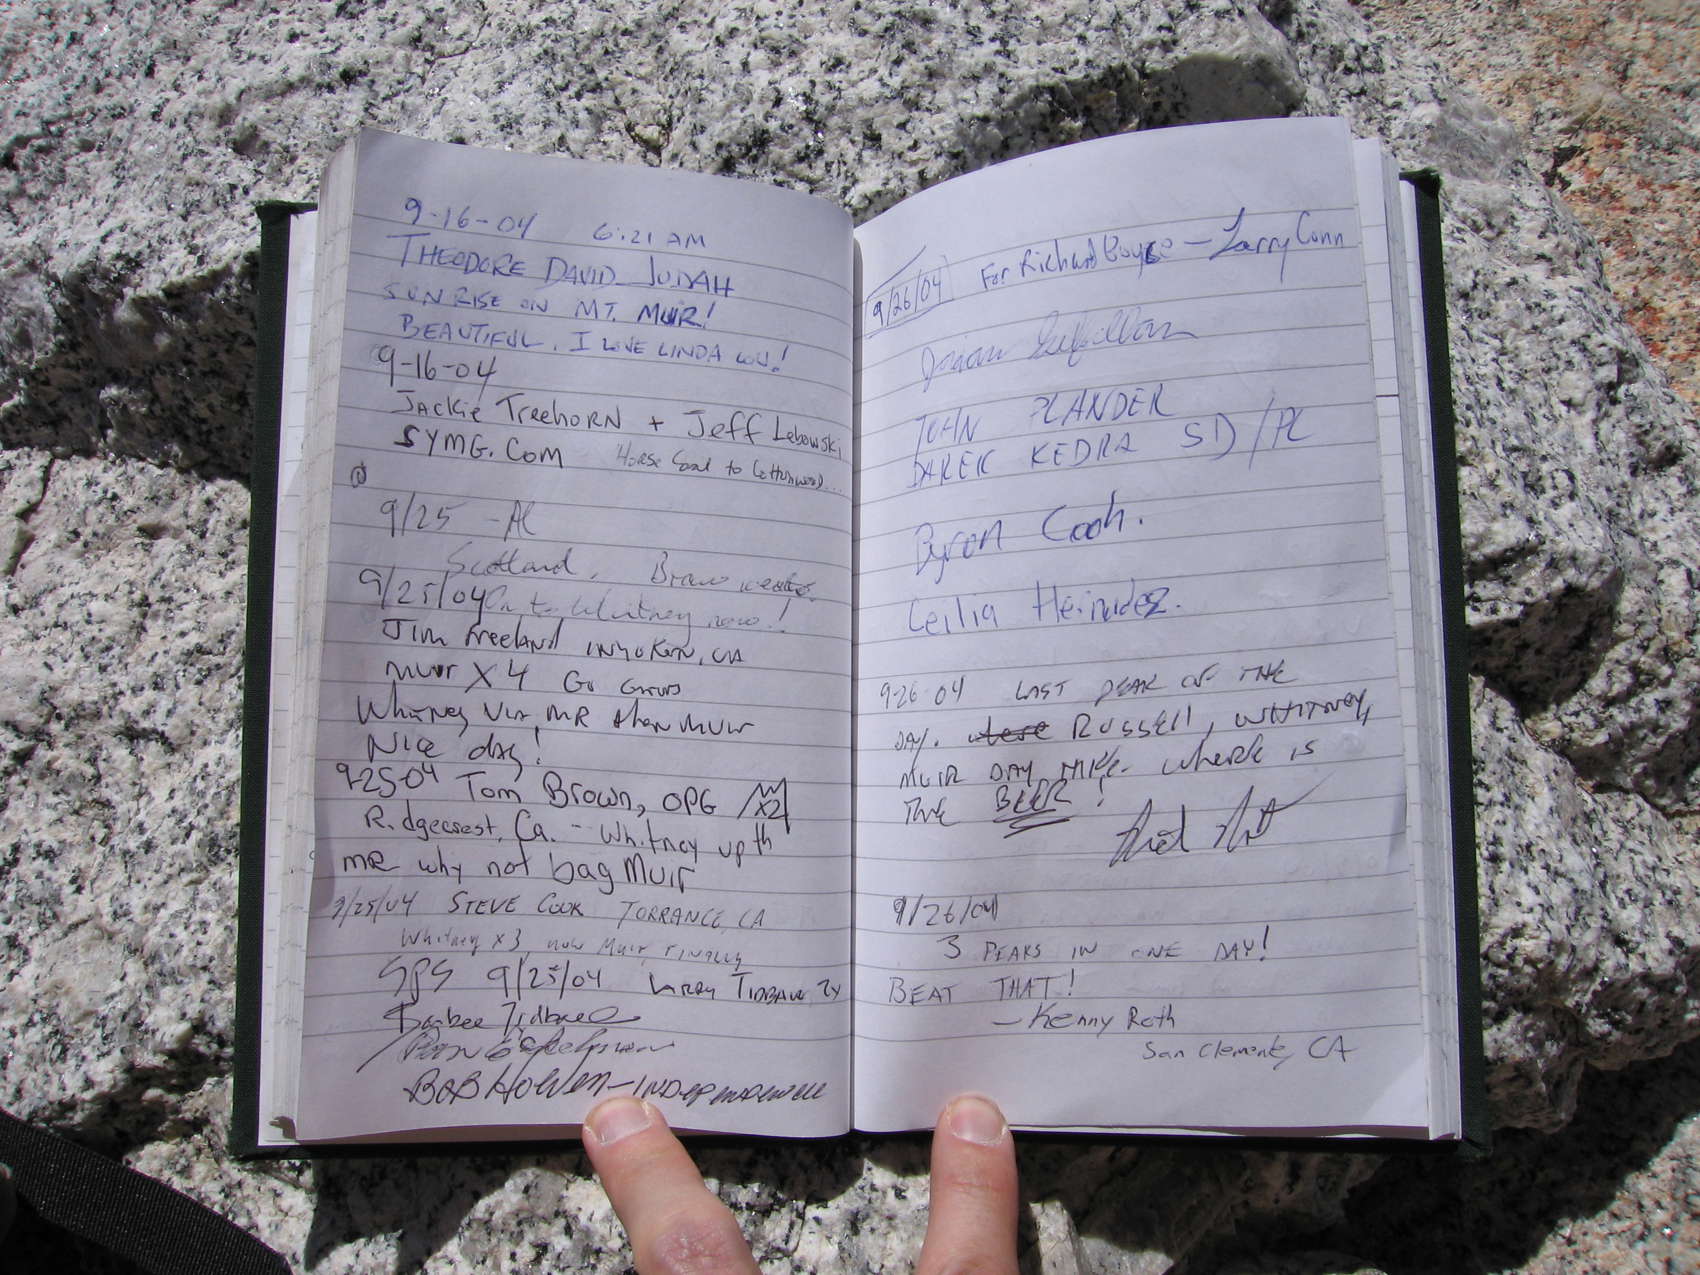 9-16-04 6:21 AM
THEODORE DAVID JUDAH
SUNRISE ON MT. MUIR!
BEAUTIFUL. I LOVE LINDA LOU!
9-16-04
Jackie Treehorn + Jeff Lebowski
SYMG.COM Horse to Cottonwood...
9/25 - AL
Scotland.
9/25/04 On to Whitney now!
Jim Freeland INYOKERN, CA
MUIR X 4
Whitney Via MR then Muir
Nice day!
9-25-04 Tom Brown, OPG X2
Ridgecrest, Ca. -- Whitney up th
MR why not bag Muir
9/25/04 STEVE COOK TORRANCE, CA
Whitney x3, now Muir, FINALLY
SPS 9/25/04 Larry TIDBALL
Barbee Tidball
BOB HOLVEN - INDEPENDENCE
9/26/04 For Richard Boyce - Larry Conn
JOHN PLANDER
DAREK KEDRA SD/PL
Byron Cook.
9-26-04 LAST PEAK OF THE
DAY. RUSSELL, WHITNEY,
MUIR DAY HIKE. WHERE IS
THE BEER!
9/26/04
3 PEAKS IN ONE DAY!
BEAT THAT!
- Kenny Roth
San Clemente, CA